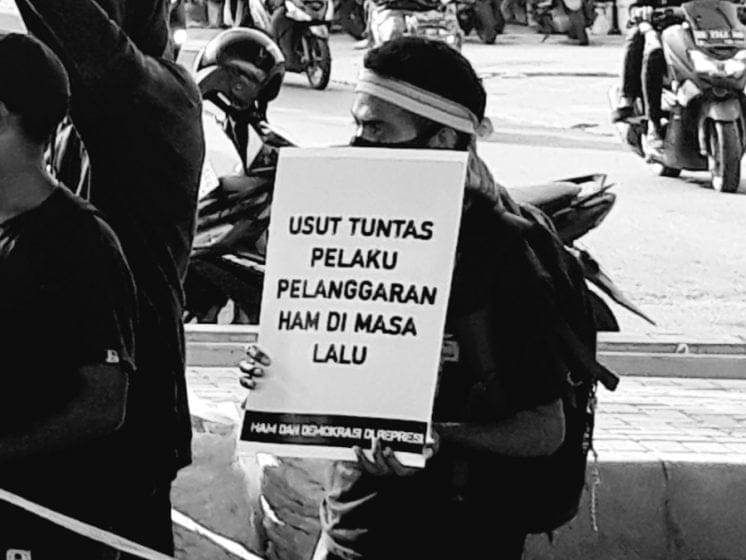 USUT TUNTAS
PELAKU
PELANGGARAN
HAM DI MASA
LALU
HAM DAN DEMOKRASI DI REPRESI